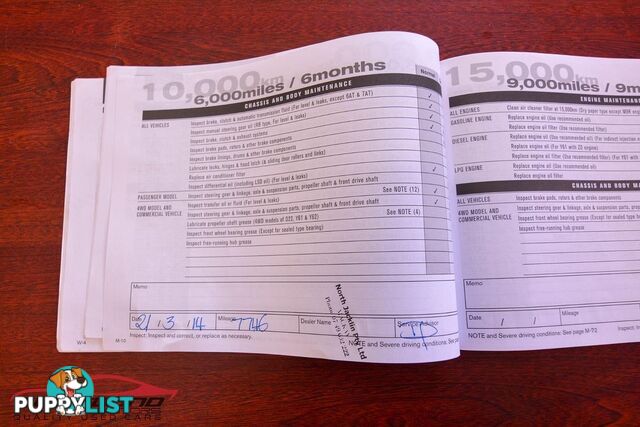 10,000km
6,000miles / 6months
Normal
CHASSIS AND BODY MAINTENANCE
ALL VEHICLES
Inspect brake, clutch & automatic transmission fluid (For level & leaks, except 6AT & 7AT)
Inspect manual steering gear oil (RB type, For level & leaks)
Inspect brake, clutch & exhaust systems
Inspect brake pads, rotors & other brake components
Inspect brake linings, drums & other brake components
Lubricate locks, hinges & hood latch (& sliding door rollers and links)
Replace air conditioner filter
Inspect differential oil (including LSD oil) (For level & leaks)
PASSENGER MODEL
Inspect steering gear & linkage, axle & suspension parts, propeller shaft & front drive shaft
See NOTE (12)
4WD MODEL AND COMMERCIAL VEHICLE
Inspect transfer oil or fluid (For level & leaks)
Inspect steering gear & linkage, axle & suspension parts, propeller shaft & front drive shaft
See NOTE (4)
Lubricate propeller shaft grease (4WD models of D22, Y61 & Y62)
Inspect front wheel bearing grease (Except for sealed type bearing)
Inspect free-running hub grease
Memo
Date
21 / 3 / 14
Mileage
7746
Dealer Name
Service Advisor
North Jacklin Pty Ltd
Inspect: Inspect and correct, or replace as necessary.
NOTE and Severe driving conditions: See
W-4
M-10
15,000
9,000miles / 9m
ENGINE MAINTENANCE
ALL ENGINES
Clean air cleaner filter at 15,000km (Dry paper type except MOR
GASOLINE ENGINE
Replace engine oil (Use recommended oil)
Replace engine oil filter (Use recommended oil)
DIESEL ENGINE
Replace engine oil (Use recommended oil)
LPG ENGINE
Replace engine oil
Replace engine oil filter
CHASSIS AND BODY MAINTENANCE
ALL VEHICLES
Inspect brake pads, rotors & other brake components
4WD MODEL AND COMMERCIAL VEHICLE
Inspect steering gear & linkage, axle & suspension parts,
Inspect front wheel bearing grease (Except for sealed
Inspect free-running hub grease
Memo
Date
/ /
Mileage
NOTE and Severe driving conditions: See page M-72
PUPPYLIST
QUALITY USED CARS